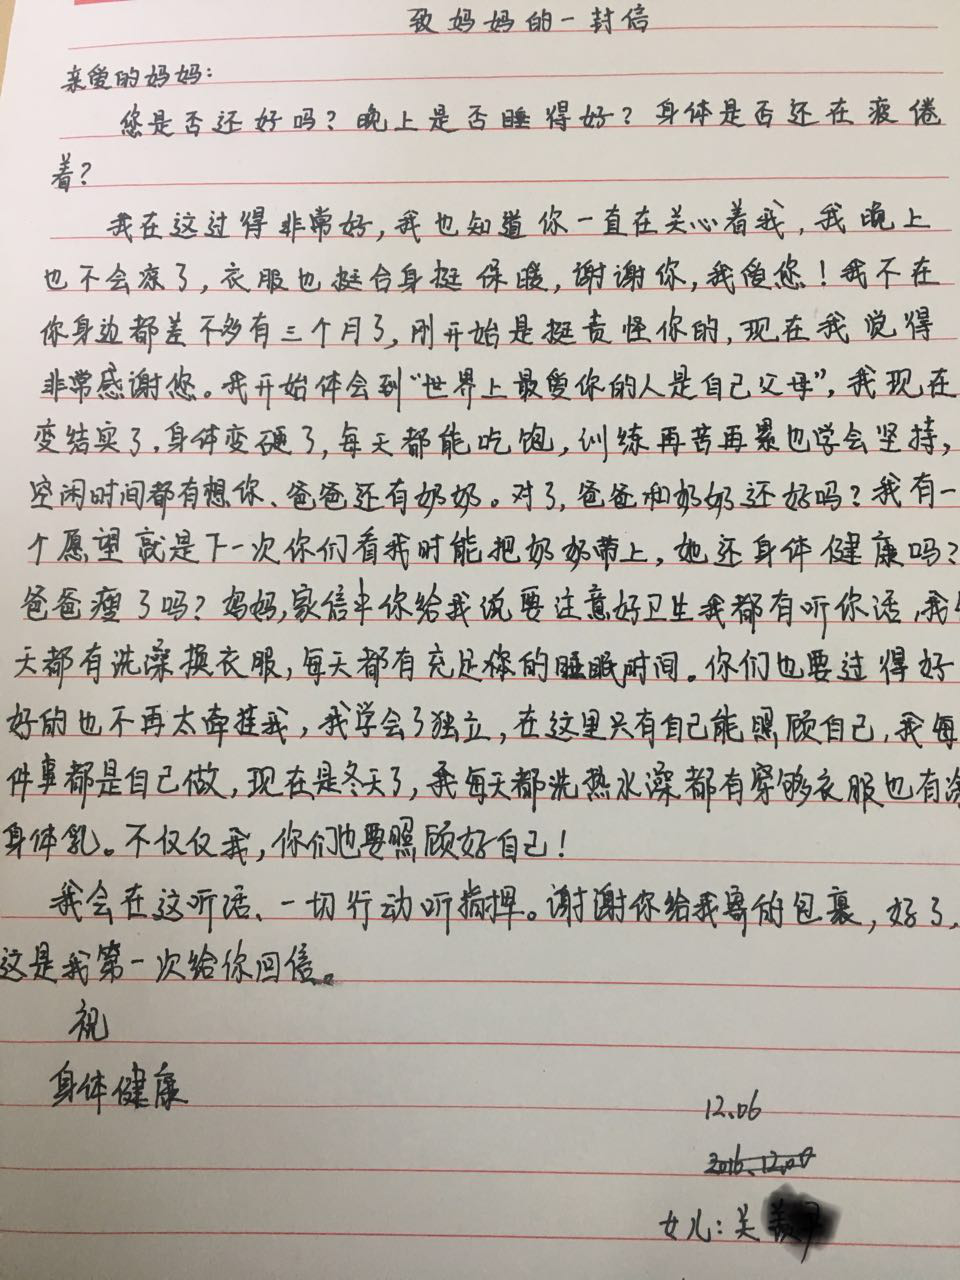 致妈妈的一封信
亲爱的妈妈:
您是否还好吗?晚上是否睡得好?身体是否还在疲倦
着?
我在这过得非常好,我也知道你一直在关心着我,我晚上
也不会凉了,衣服也挺合身挺保暖,谢谢你,我爱您!我不在
你身边都差不多有三个月了,刚开始是挺责怪你的,现在我觉得
非常感谢您。我开始体会到“世界上最爱你的人是自己父母”,我现在
变结实了,身体变硬了,每天都能吃饱,训练再苦再累也学会坚持,
空闲时间都有想你、爸爸还有奶奶。对了,爸爸和奶奶还好吗?我有一
个愿望就是下一次你们看我时能把奶奶带上,她还身体健康吗?
爸爸瘦了吗?妈妈,家信中你给我说要注意好卫生我都有听你话,我
天都有洗澡换衣服,每天都有充足的睡眠时间。你们也要过得好
好的也不再太牵挂我,我学会了独立,在这里只有自己能照顾自己,我每
件事都是自己做,现在是冬天了,我每天都洗热水澡都有穿够衣服也有涂
身体乳。不仅仅我,你们也要照顾好自己!
我会在这听话、一切行动听指挥。谢谢你给我寄的包裹,好了,
这是我第一次给你回信。
祝
身体健康
12.06
女儿:吴